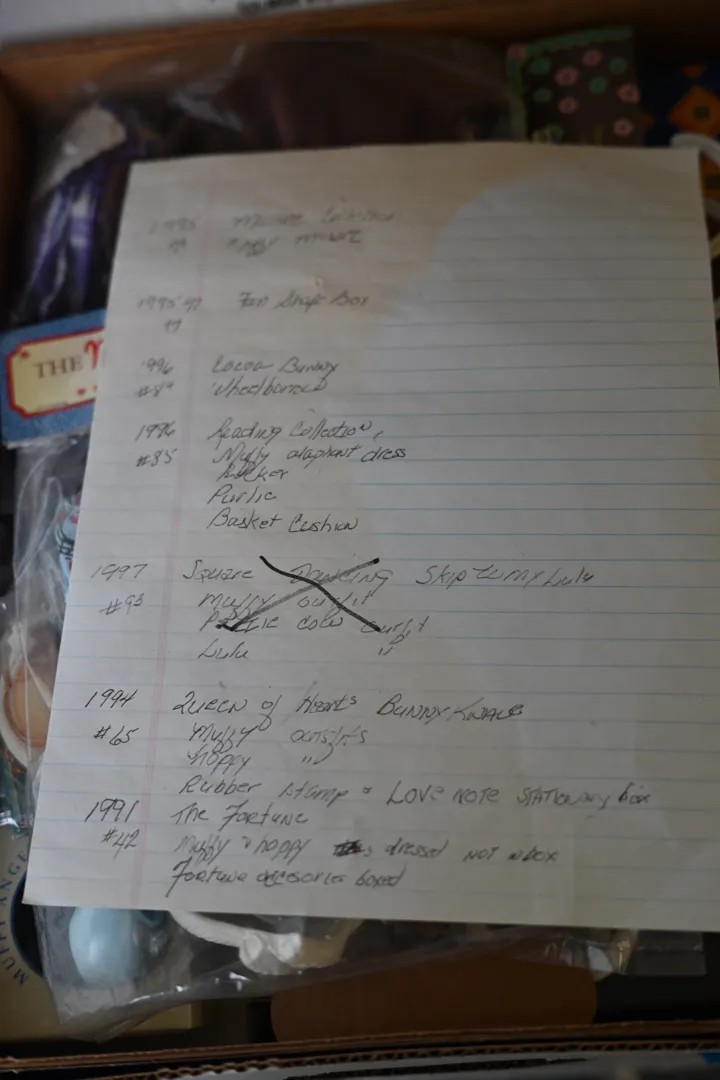 1995
1995-97 Fan Shape Box
1996 Cocoa Bunny
#89 Wheelbarrow
1996 Reading Collection,
#85 Muffy alaphant dress
Purlie
Basket Cushion
1997 Square Dancing Skip to my Lulu
#93 Muffy outfit
cow outfit
Lulu "
1994 Queen of Hearts Bunny Knave
#65 Muffy outfits
hoppy "
Rubber Stamp & LOVE NOTE STATIONARY box
1991 The Fortune
#42 Muffy & hoppy dressed NOT in box
Fortune accesories boxed
THE
MUFFY